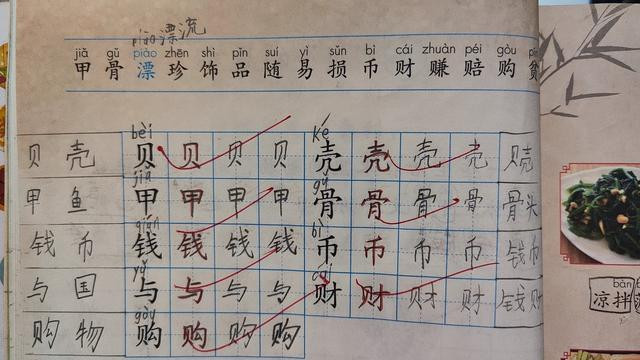 piào 漂流
jiǎ gǔ piào zhēn shì pǐn suí yì sǔn bì cái zhuàn péi gòu
甲 骨 漂 珍 饰 品 随 易 损 币 财 赚 赔 购 贫
bèi ké
贝 壳 贝 贝 贝 贝 壳 壳 壳 壳 贝壳
jiǎ gǔ
甲 鱼 甲 甲 甲 甲 骨 骨 骨 骨 骨头
qián bì
钱 币 钱 钱 钱 钱 币 币 币 币 钱币
yǔ cái
与 国 与 与 与 与 财 财 财 财 钱财
gòu
购 物 购 购 购 购
bàn
凉拌